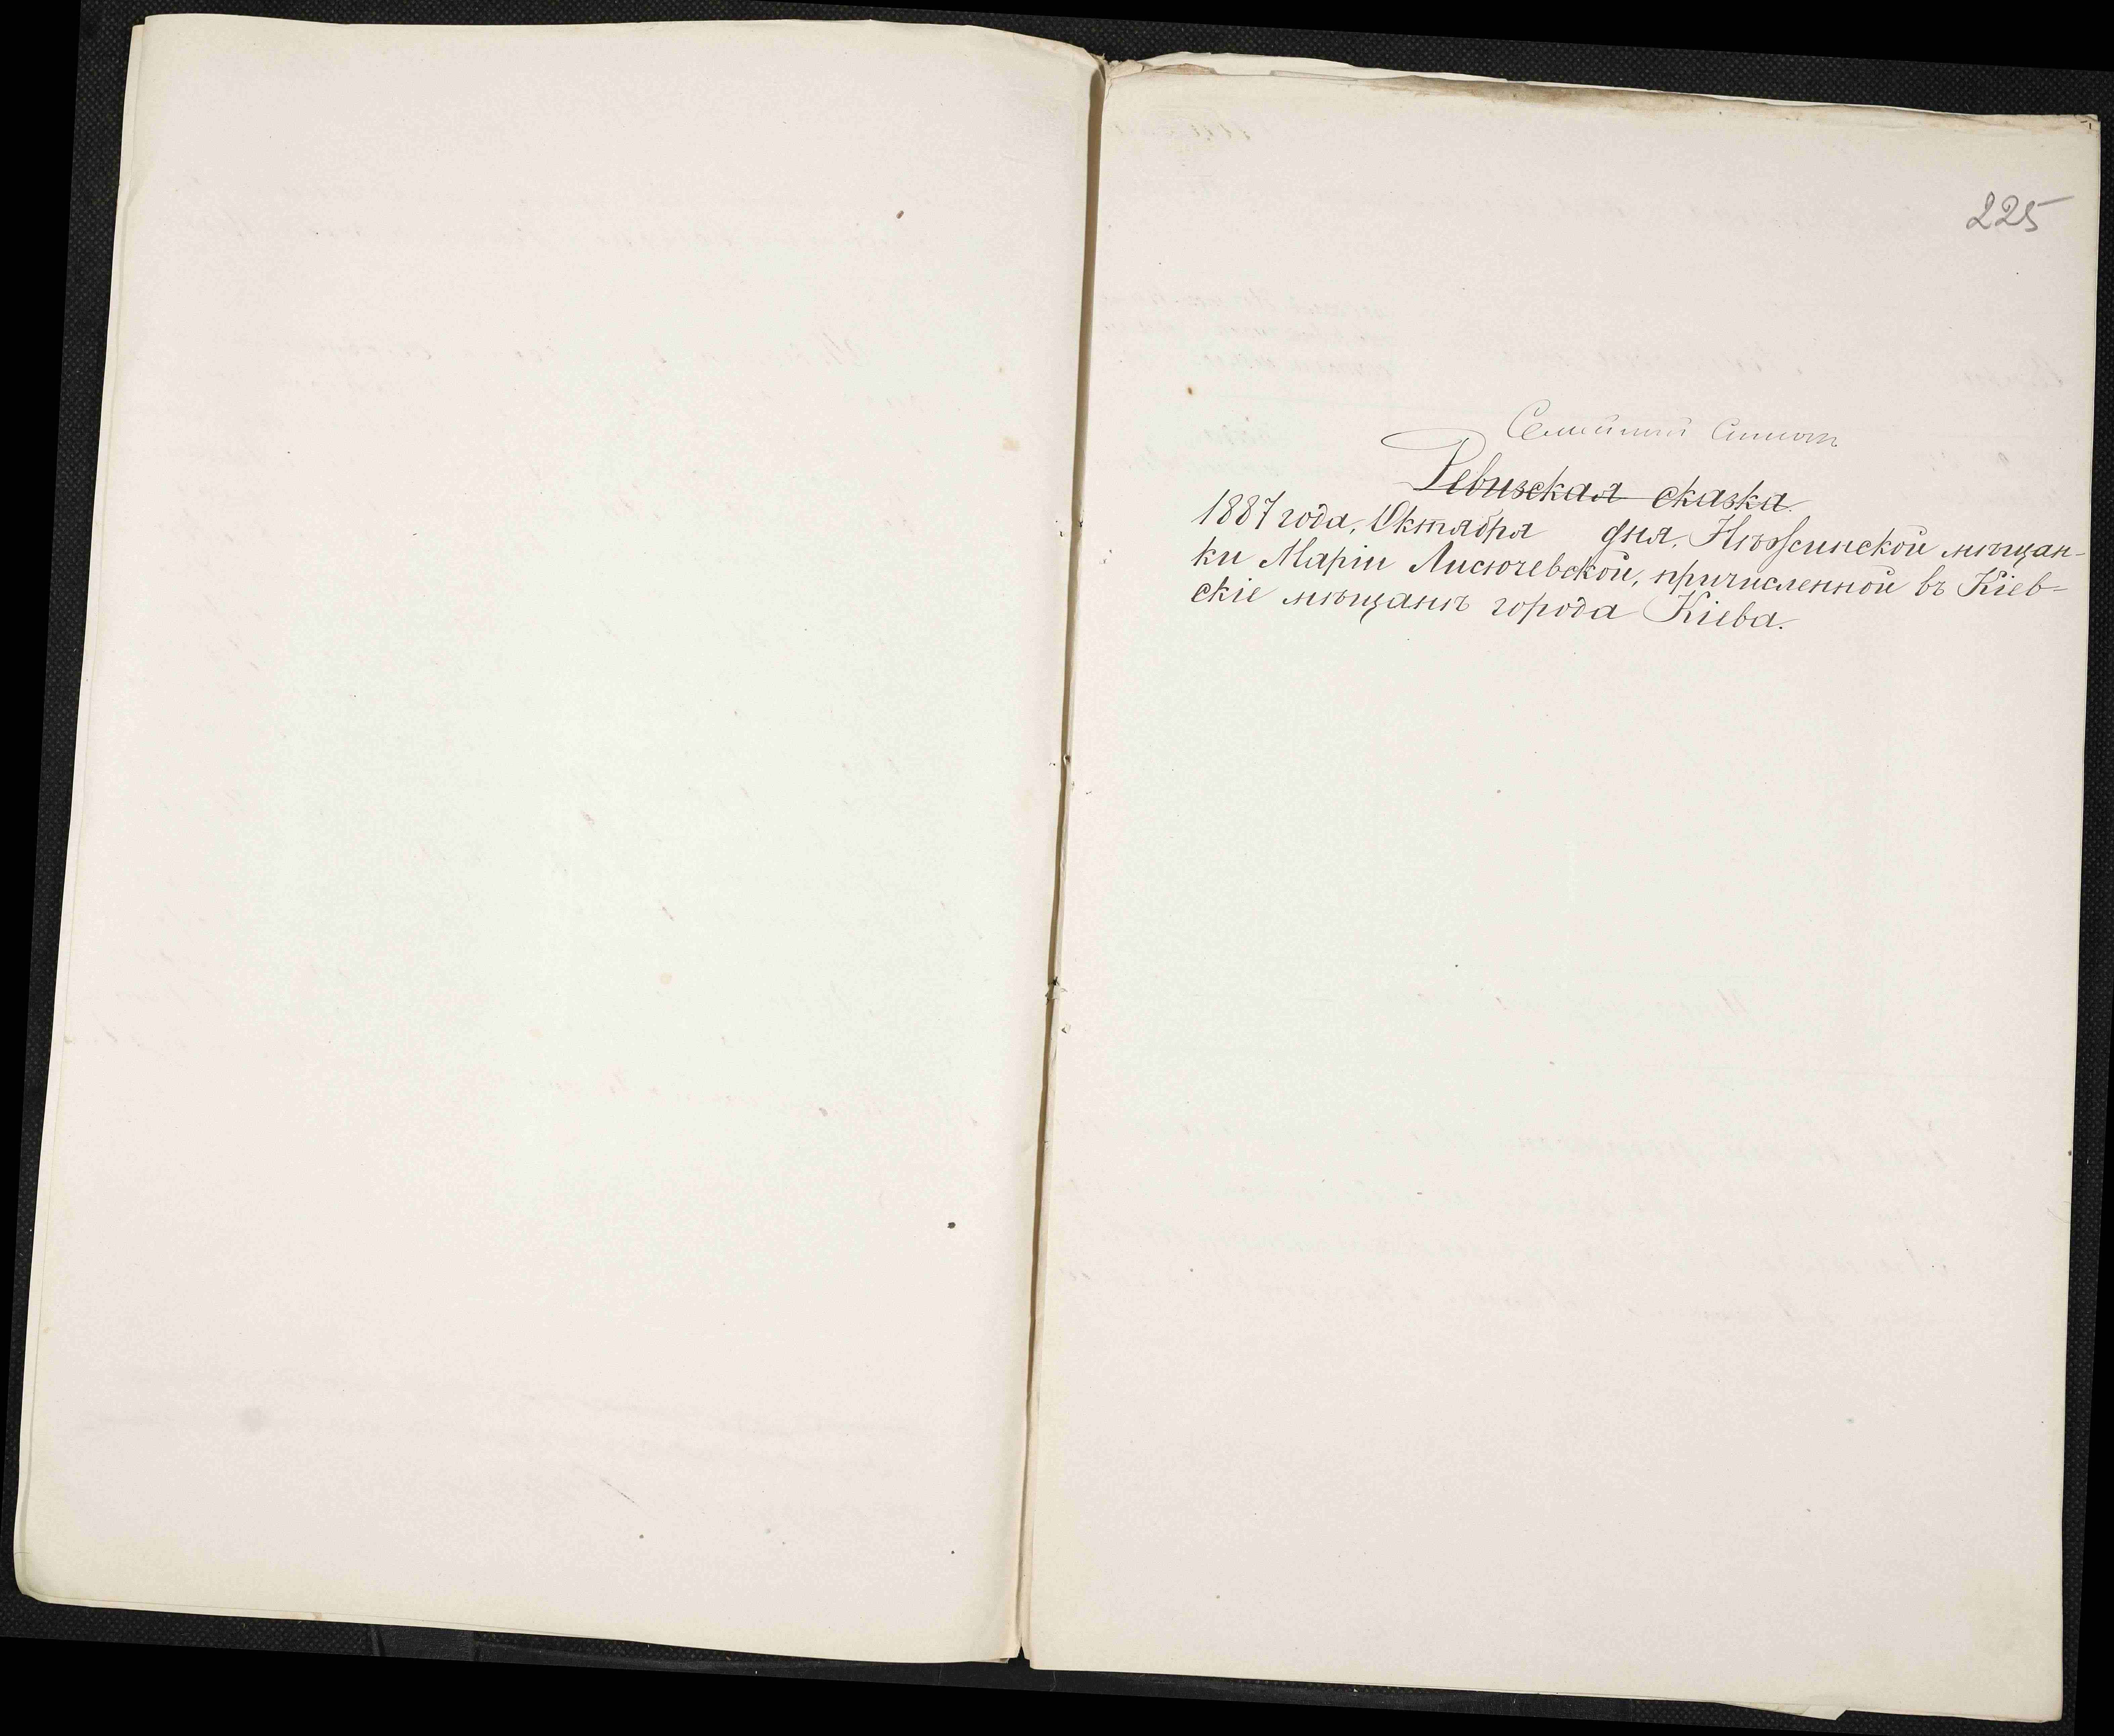 225
Семейный списокъ
Ревизская сказка.
1887 года, Октября дня, Нѣжинской мѣщан-
ки Маріи Лисючевской, причисленной въ Кіев-
скіе мѣщане города Кіева.